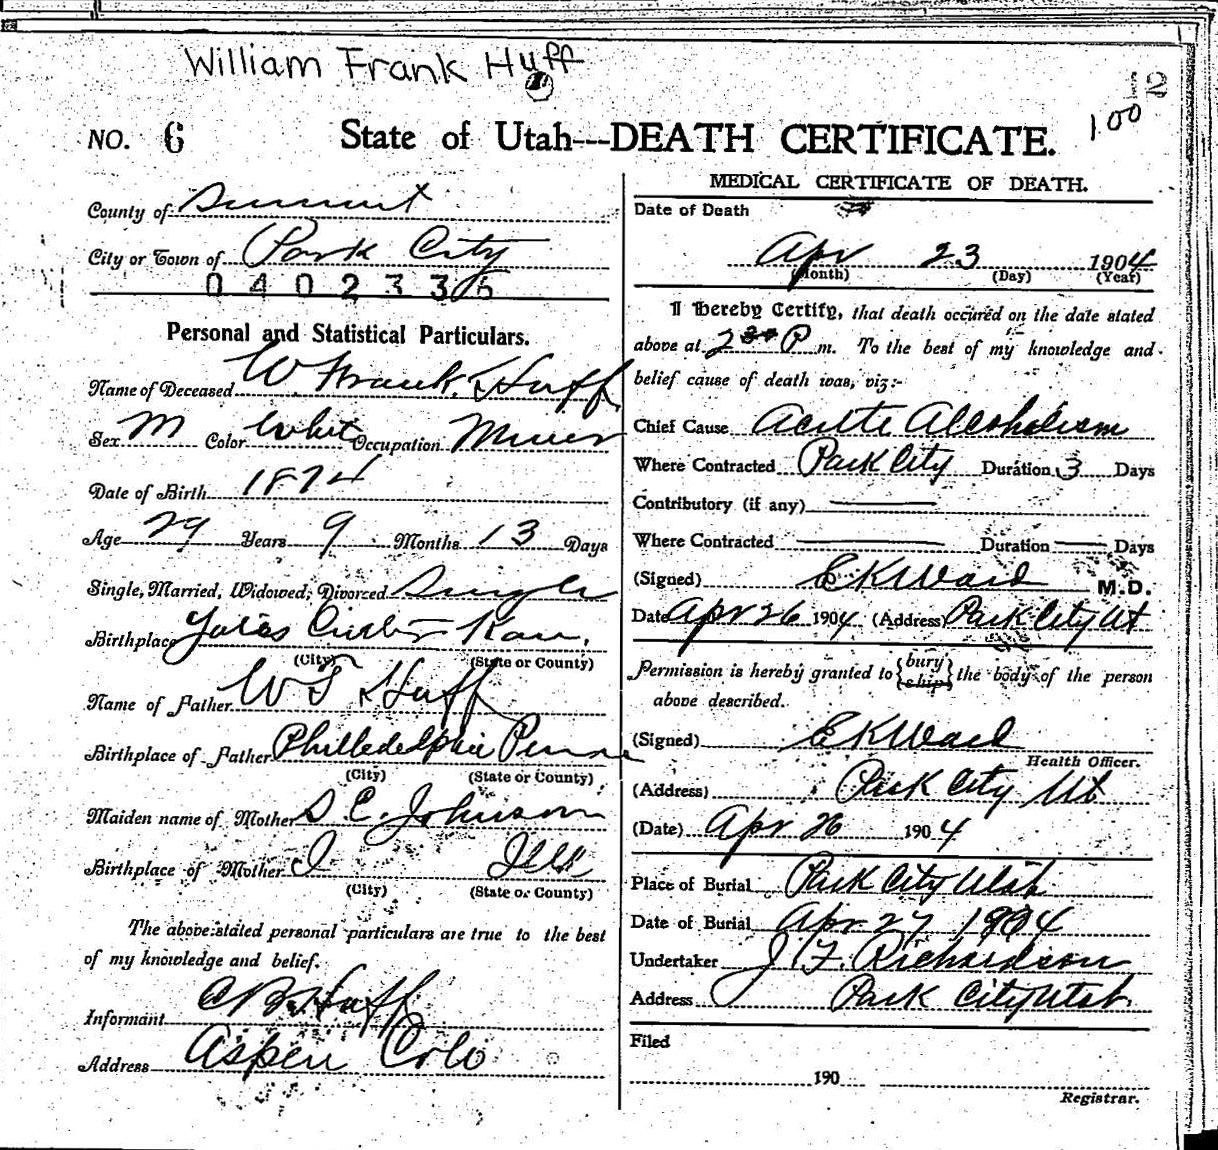 William Frank Huff
12
1 00
NO. 6 State of Utah---DEATH CERTIFICATE.
County of Summit
City or Town of Park City
0402335
Personal and Statistical Particulars.
Name of Deceased W Frank. Huff
Sex M Color White Occupation Miner
Date of Birth 1874
Age 29 Years 9 Months 13 Days
Single, Married, Widowed, Divorced Single
Birthplace Yates Kan.
(City) (State or County)
Name of Father W Huff
Birthplace of Father Philledelphie Penna
(City) (State or County)
Maiden name of Mother S. C. Johnson
Birthplace of Mother Ills
(City) (State or County)
The above stated personal particulars are true to the best
of my knowledge and belief.
Informant C B. Huff
Address Aspen Colo
MEDICAL CERTIFICATE OF DEATH.
Date of Death
Apr 23 1904
(Month) (Day) (Year)
I hereby Certify, that death occured on the date stated
above at 2 30 P m. To the best of my knowledge and
belief cause of death was, viz:-
Chief Cause Acute Alcoholism
Where Contracted Park City Duration 3 Days
Contributory (if any)
Where Contracted Duration Days
(Signed) E K Ward M.D.
Date Apr 26 1904 (Address) Park City Ut
Permission is hereby granted to {bury ship} the body of the person
above described.
(Signed) E K Ward
Health Officer.
(Address) Park City Ut
(Date) Apr 26 1904
Place of Burial Park City Utah
Date of Burial Apr 27 1904
Undertaker J F. Richardson
Address Park City Utah
Filed
190
Registrar.